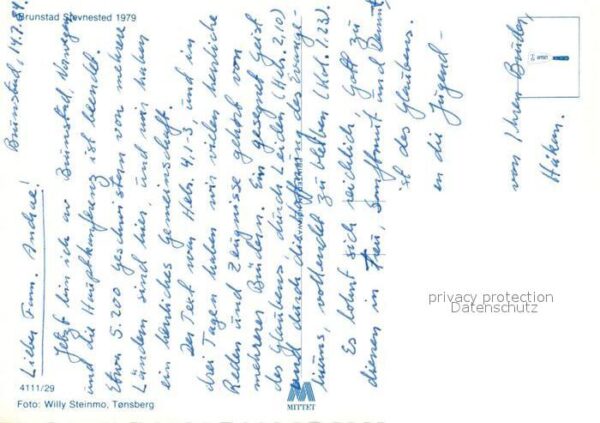 Brunstad Stevnested 1979
Brunstad, 14.7.84
Lieber Fam. Andrae!
Jetzt bin ich av Brunstad, Norwegen
und die Hauptkonferenz ist beendet.
Etwa 5.200 Geschwistern von mehrere
Ländern sind hier, und wir haben
ein herliches Gemeinschaft.
Der Text war Hebr. 4,1-3, und in
drei Tagen haben wir vielen herrliche
Reden und Zeugnisse gehört von
mehrerer Brüdern. Ein geeignet Geist
des Glaubens, durch Leiden (Heb. 2,10)
und durch die Hoffnung des Evange-
liums, vollendet zu bleiben (Kol. 1,23).
Es lohnt sich reichlich, Gott zu
dienen in Treu, Sanftmut und Demut
ist des Glaubens.
en die Jugend-
von Ihren Bruder,
Håkon.
4111/29
Foto: Willy Steinmo, Tønsberg
MITTET
privacy protection
Datenschutz